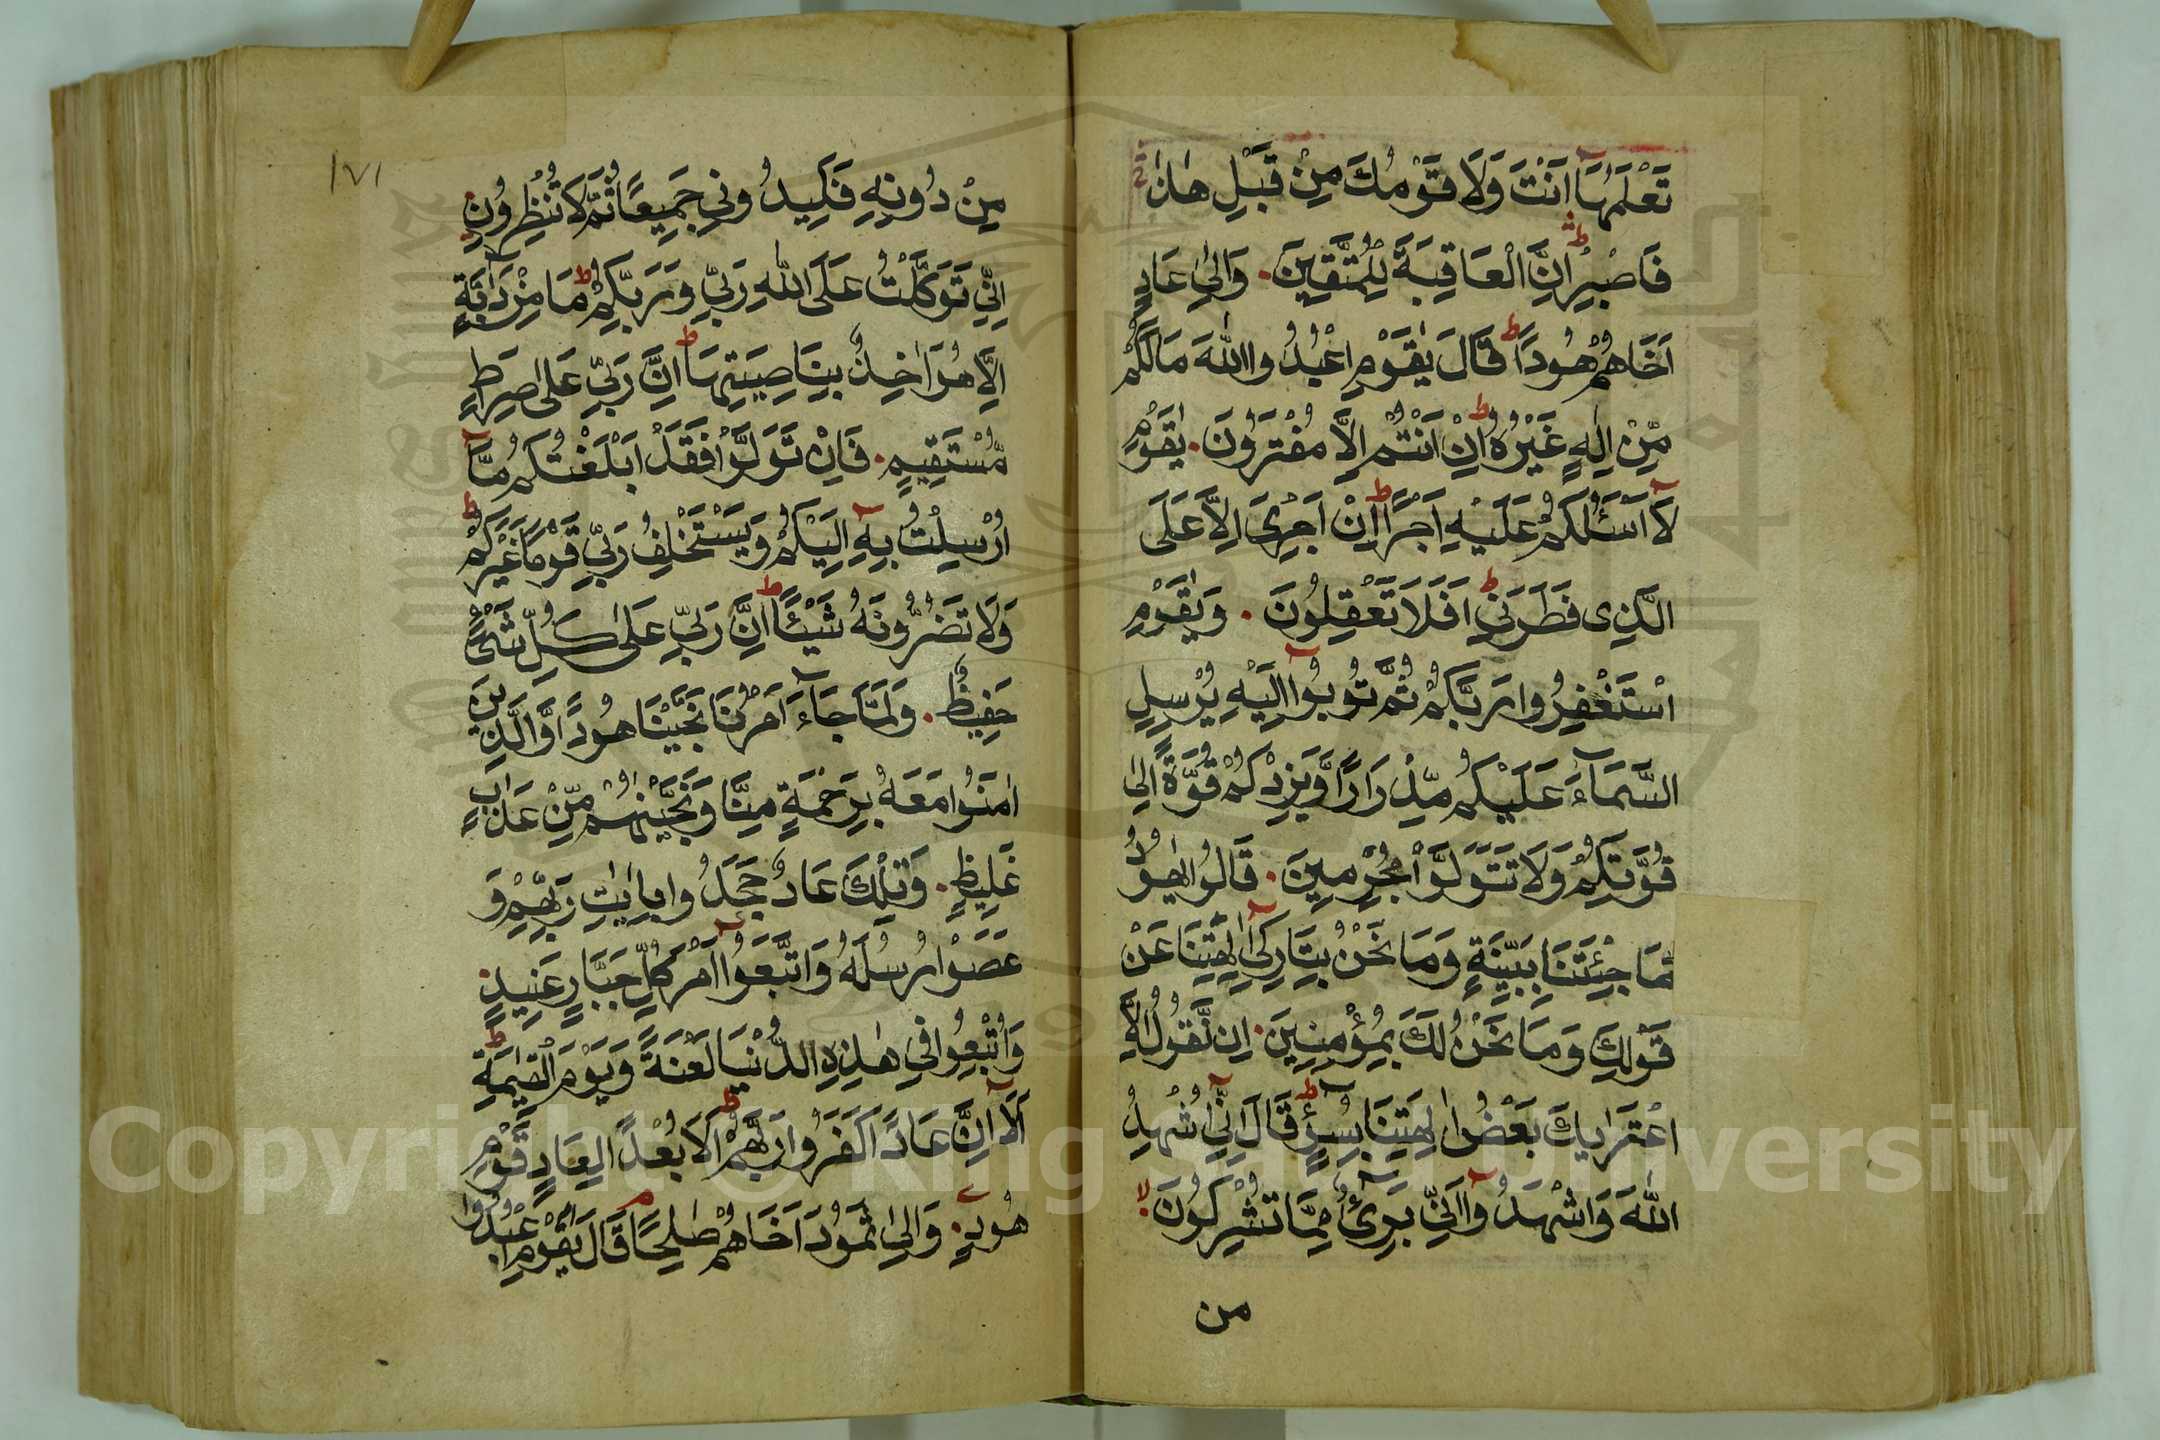 تَعْلَمُهَآ اَنْتَ وَلَا قَوْمُكَ مِنْ قَبْلِ هٰذَا
فَاصْبِرْ ط اِنَّ الْعَاقِبَةَ لِلْمُتَّقِيْنَ . وَاِلٰى عَادٍ
اَخَاهُمْ هُوْدًا ط قَالَ يٰقَوْمِ اعْبُدُوا اللّٰهَ مَالَكُمْ
مِّنْ اِلٰهٍ غَيْرُهٗ ط اِنْ اَنْتُمْ اِلَّا مُفْتَرُوْنَ . يٰقَوْمِ
لَآ اَسْئَلُكُمْ عَلَيْهِ اَجْرًا ط اِنْ اَجْرِيَ اِلَّا عَلَى
الَّذِى فَطَرَنِيْ ط اَفَلَا تَعْقِلُوْنَ . وَيٰقَوْمِ
اسْتَغْفِرُوا رَبَّكُمْ ثُمَّ تُوْبُوْٓا اِلَيْهِ يُرْسِلِ
السَّمَآءَ عَلَيْكُمْ مِّدْرَارًا وَّيَزِدْكُمْ قُوَّةً اِلٰى
قُوَّتِكُمْ وَلَا تَتَوَلَّوْا مُجْرِمِيْنَ . قَالُوْا يٰهُوْدُ
مَا جِئْتَنَا بِبَيِّنَةٍ وَمَا نَحْنُ بِتَارِكِيْٓ اٰلِهَتِنَا عَنْ
قَوْلِكَ وَمَا نَحْنُ لَكَ بِمُؤْمِنِيْنَ . اِنْ نَّقُوْلُ اِلَّا
اعْتَرٰىكَ بَعْضُ اٰلِهَتِنَا بِسُوْٓءٍ ط قَالَ اِنِّيْٓ اُشْهِدُ
اللّٰهَ وَاشْهَدُوْٓا اَنِّيْ بَرِيْٓءٌ مِّمَّا تُشْرِكُوْنَ لا
من
١٧١
مِنْ دُوْنِهٖ فَكِيْدُوْنِيْ جَمِيْعًا ثُمَّ لَا تُنْظِرُوْنِ .
اِنِّيْ تَوَكَّلْتُ عَلَى اللّٰهِ رَبِّيْ وَرَبِّكُمْ ط مَا مِنْ دَآبَّةٍ
اِلَّا هُوَ اٰخِذٌ بِنَاصِيَتِهَا ط اِنَّ رَبِّيْ عَلٰى صِرَاطٍ
مُّسْتَقِيْمٍ . فَاِنْ تَوَلَّوْا فَقَدْ اَبْلَغْتُكُمْ مَّآ
اُرْسِلْتُ بِهٖٓ اِلَيْكُمْ وَيَسْتَخْلِفُ رَبِّيْ قَوْمًا غَيْرَكُمْ ط
وَلَا تَضُرُّوْنَهٗ شَيْئًا ط اِنَّ رَبِّيْ عَلٰى كُلِّ شَيْءٍ
حَفِيْظٌ . وَلَمَّا جَآءَ اَمْرُنَا نَجَّيْنَا هُوْدًا وَّالَّذِيْنَ
اٰمَنُوْا مَعَهٗ بِرَحْمَةٍ مِنَّا وَنَجَّيْنٰهُمْ مِّنْ عَذَابٍ
غَلِيْظٍ . وَتِلْكَ عَادٌ جَحَدُوا بِاٰيٰتِ رَبِّهِمْ وَ
عَصَوْا رُسُلَهٗ وَاتَّبَعُوْٓا اَمْرَ كُلِّ جَبَّارٍ عَنِيْدٍ .
وَاُتْبِعُوْا فِيْ هٰذِهِ الدُّنْيَا لَعْنَةً وَّيَوْمَ الْقِيٰمَةِ ط
اَلَآ اِنَّ عَادًا كَفَرُوْا رَبَّهُمْ ط اَلَا بُعْدًا لِعَادٍ قَوْمِ
هُوْدٍ . وَاِلٰى ثَمُوْدَ اَخَاهُمْ صٰلِحًا م قَالَ يٰقَوْمِ اعْبُدُوا
Copyright © King Saud University